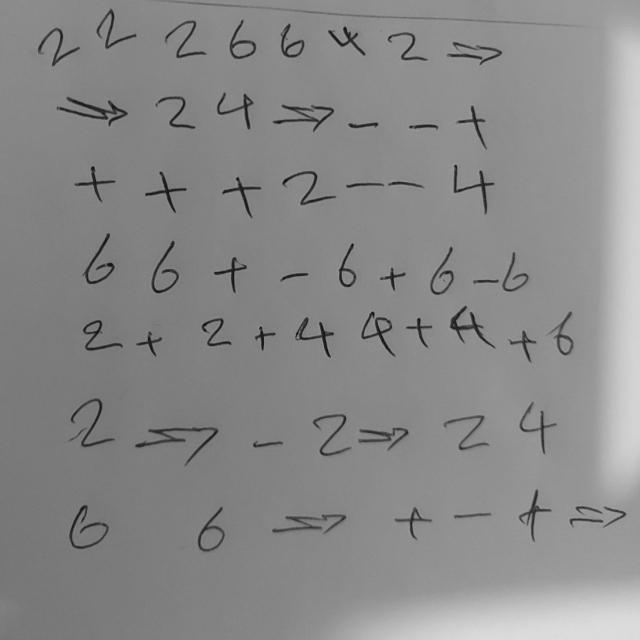 2 2 2 6 6 4 2 ⇒
⇒ 2 4 ⇒ - - +
+ + + 2 - - 4
6 6 + - 6 + 6 - 6
2 + 2 + 4 4 + 4 + 6
2 ⇒ - 2 ⇒ 2 4
6 6 ⇒ + - + ⇒